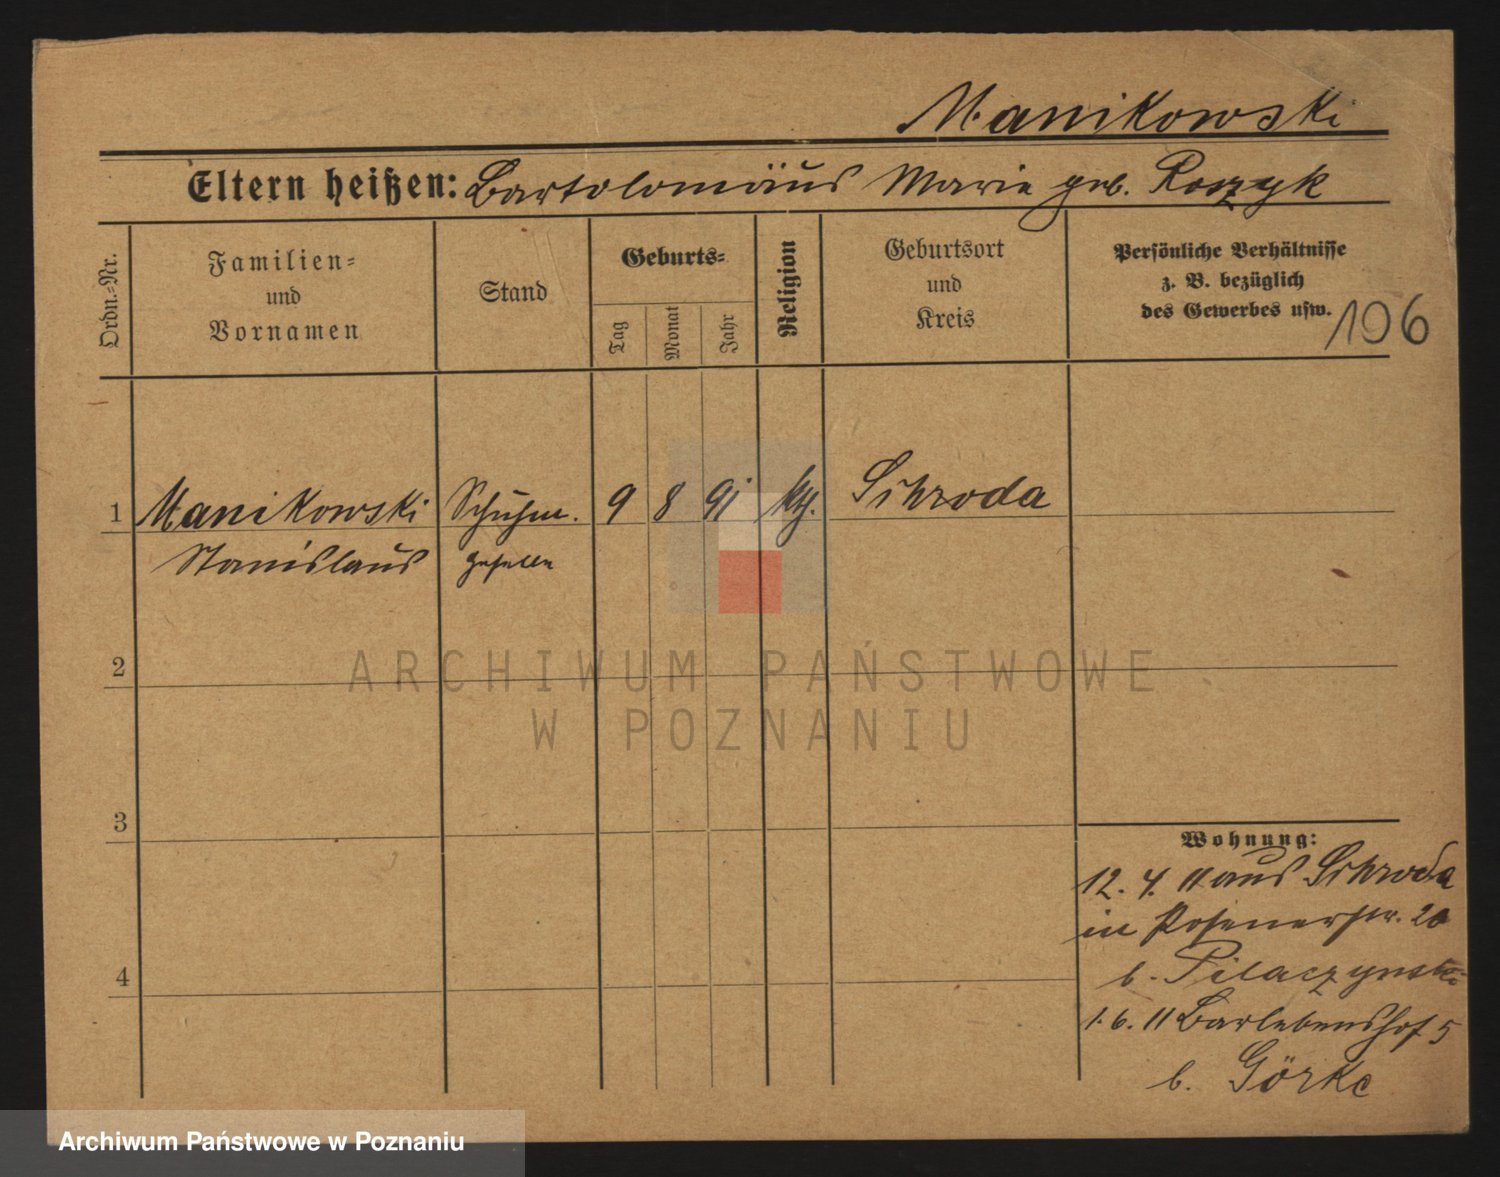 Manikowski
Eltern heißen: Bartolomäus Marie geb. Roszyk
Ordn.-Nr.
Familien-
und
Vornamen
Stand
Geburts-
Tag
Monat
Jahr
Religion
Geburtsort
und
Kreis
Persönliche Verhältnisse
z. B. bezüglich
des Gewerbes usw.
106
1 Manikowski Schuhm. 9 8 91 kth. Schroda
Stanislaus geselle
2
3
4
Wohnung:
12. 4. 11 aus Schroda
in Posenerstr. 20
b. Pilaczynski
1. 6. 11 Barlebenshof 5
b. Görke
ARCHIWUM PAŃSTWOWE
W POZNANIU
Archiwum Państwowe w Poznaniu